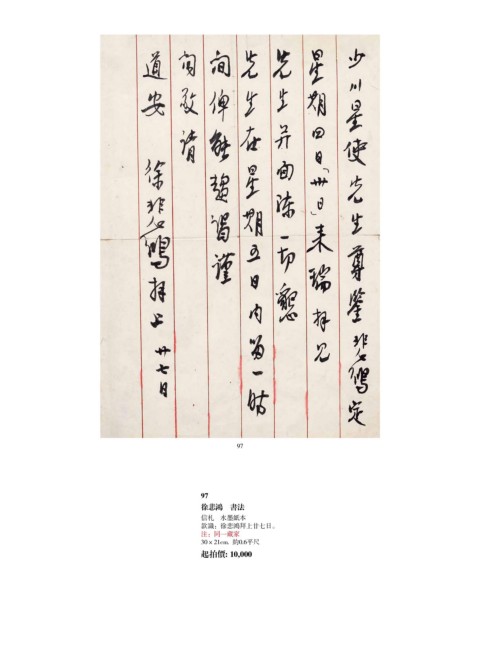 少川星使先生尊鑒悲鴻定
星期四日「卅日」來瑞拜見
先生并面陳一切懇
先生在星期五日内留一時
間俾能趨謁謹
闻敬请
道安 徐悲鴻拜上 廿七日
97
97
徐悲鴻 書法
信札 水墨紙本
款識：徐悲鴻拜上廿七日。
注：同一藏家
30×21cm. 約0.6平尺
起拍價: 10,000